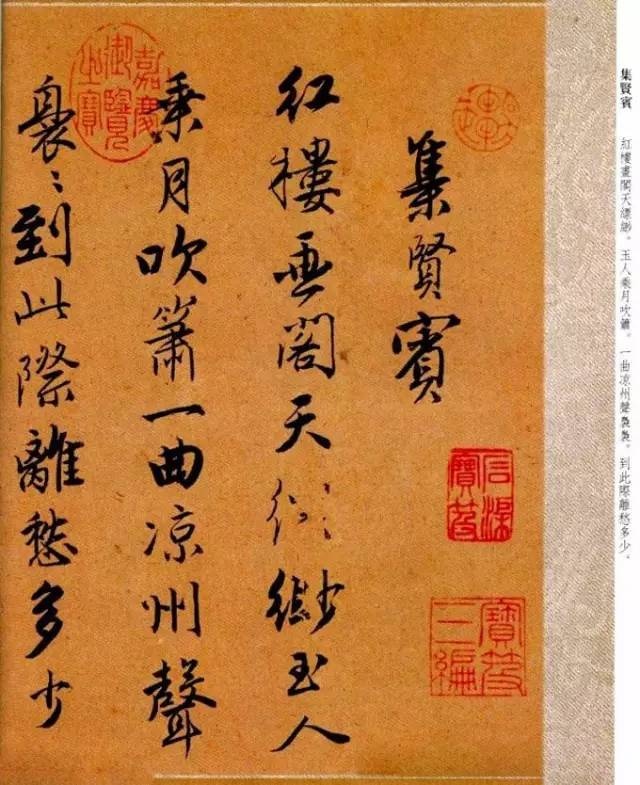 集賢賓　紅樓畫閣天縹緲。玉人乘月吹簫。一曲凉州聲裊裊。到此際離愁多少。
集賢賓
紅樓畫閣天縹緲玉人
乘月吹簫一曲凉州聲
裊〻到此際離愁多少
石渠寶笈
寶笈三編
嘉慶御覽之寶